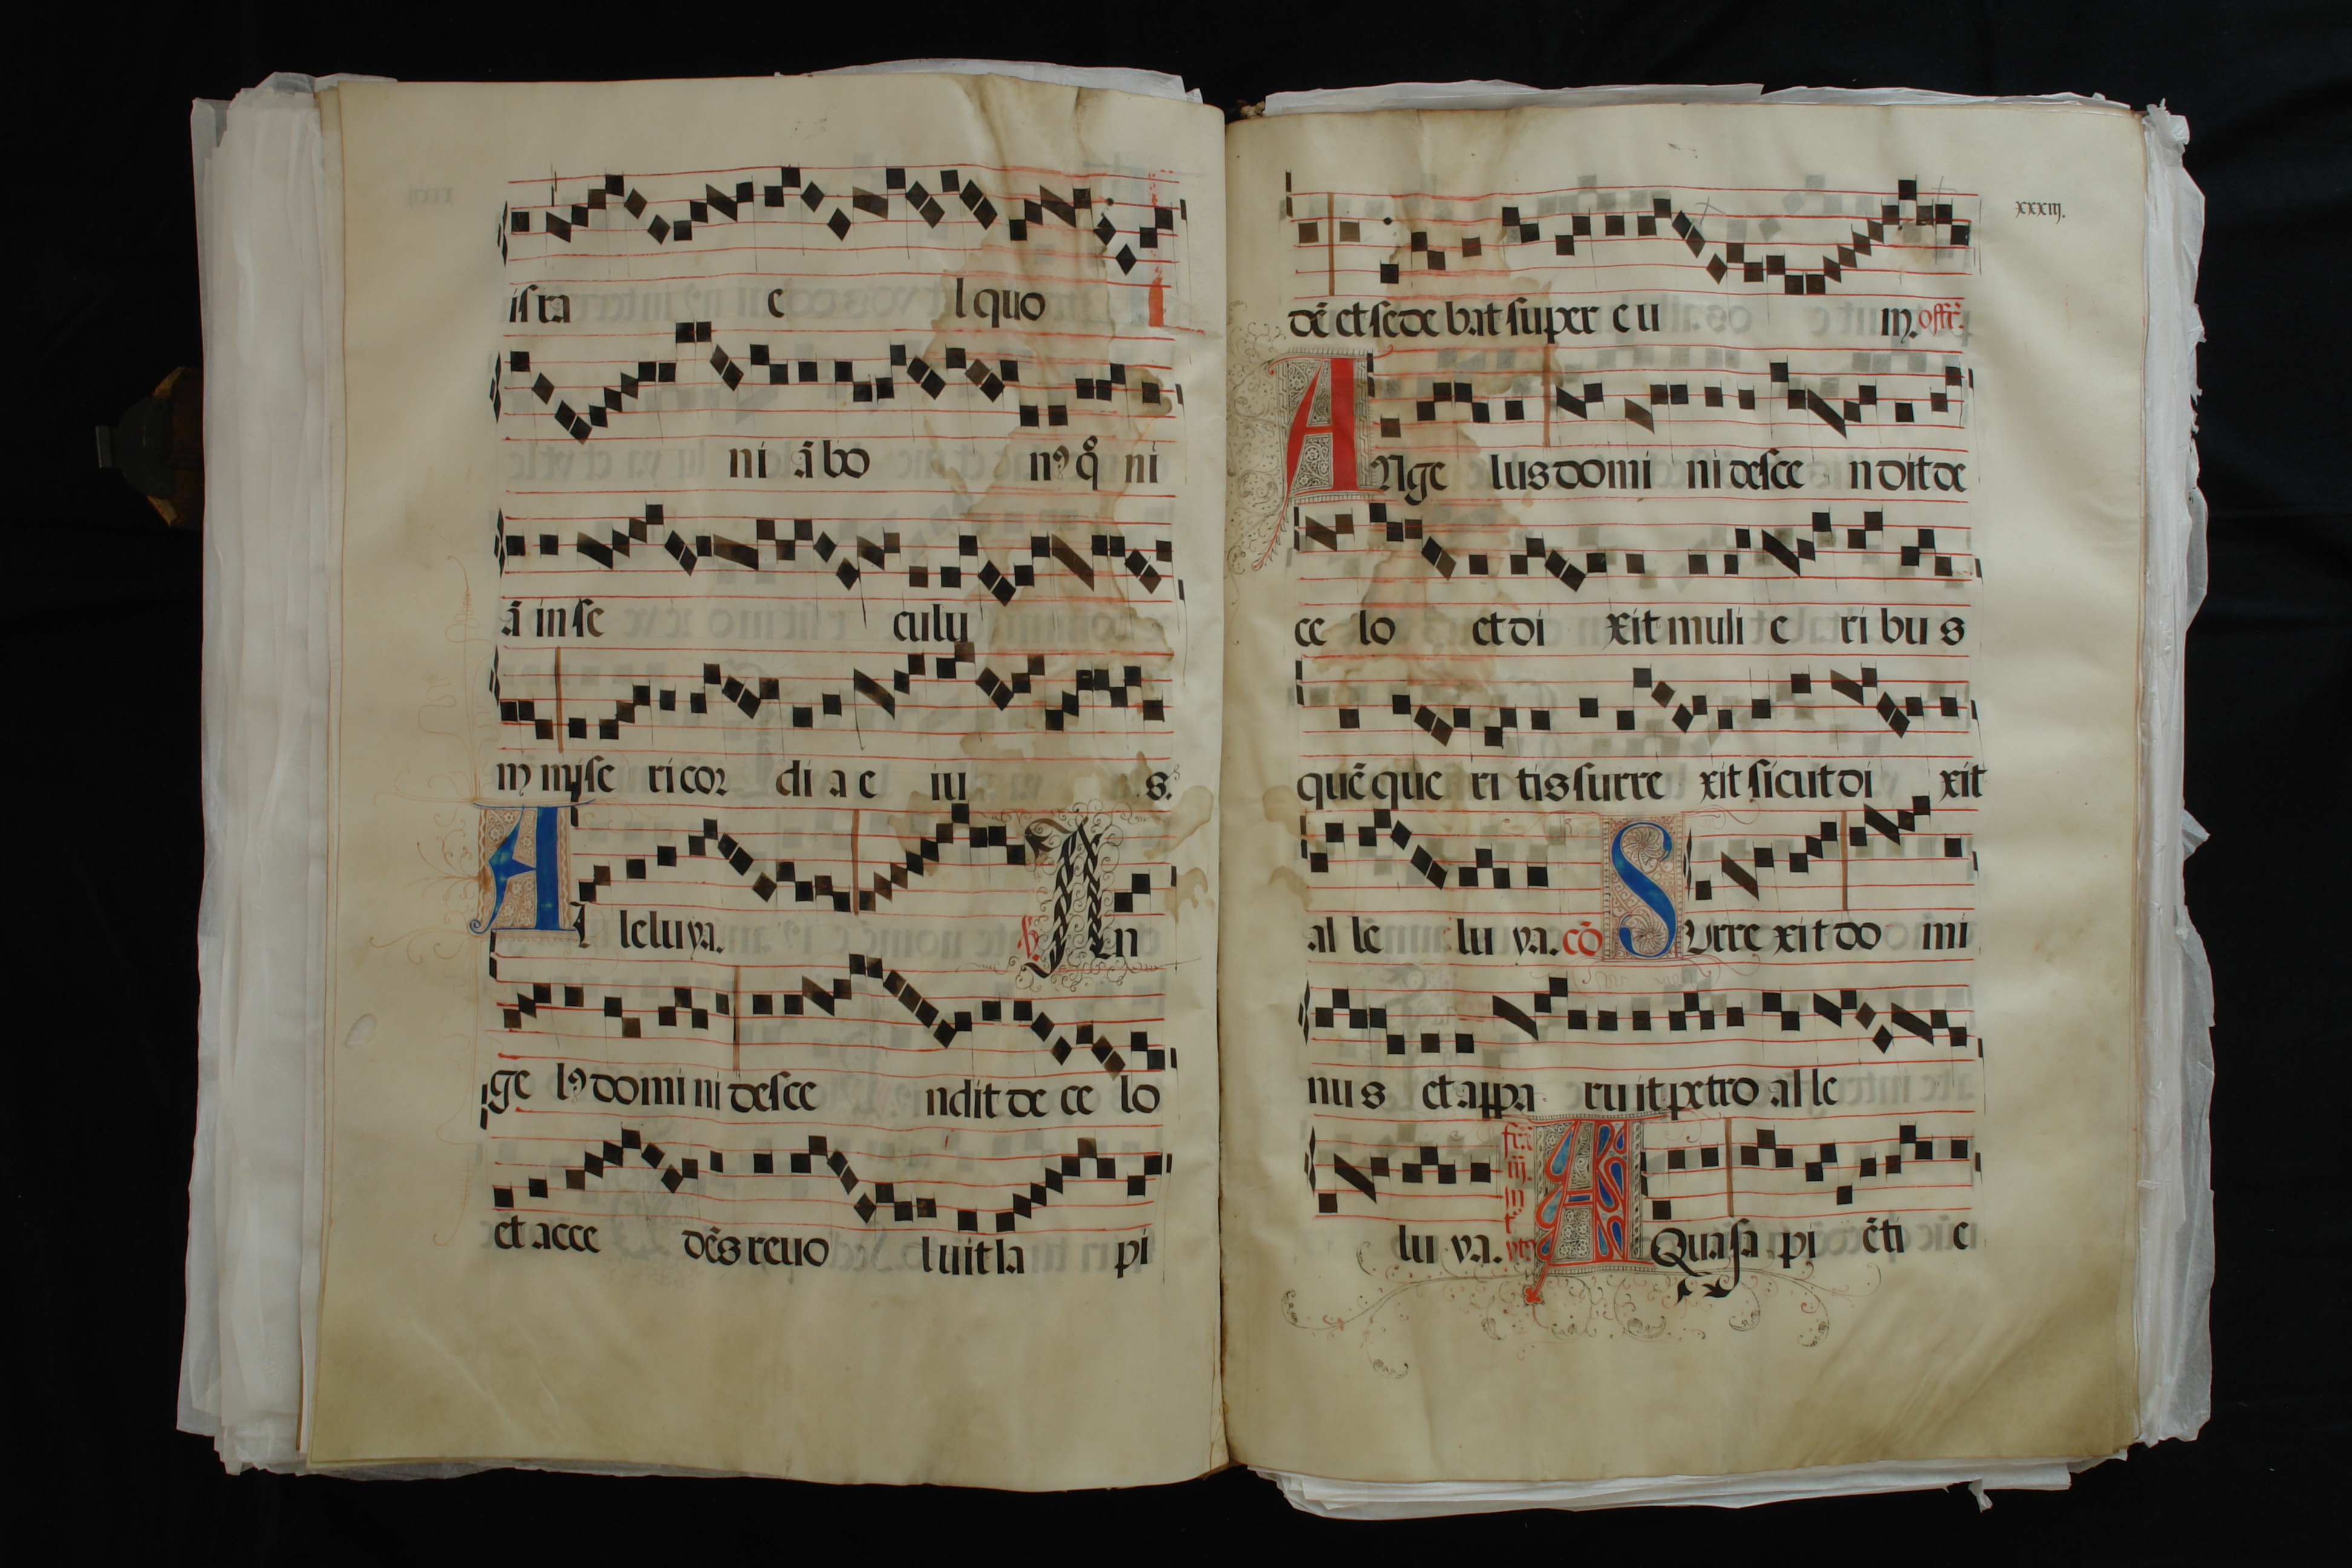 isra e l quo
ni ā bo nꝰ qͦ ni
ā in se culu
m mise ri cor di a e iu s.
Al leluya. ℣. An
ge lꝰ domi ni desce ndit de ce lo
et acce dēs reuo luit la pi
xxxiij.
dē et sede bat super e u m. offr̄.
ANge lus domi ni desce n dit de
ce lo et di xit muli e ri bu s
quē que ri tis surre xit sicut di xit
al le lu ya. cō Surre xit do mi
nu s et appa ru it petro al le
lu ya. fr̄a iij. Aqua sa pi ēti e